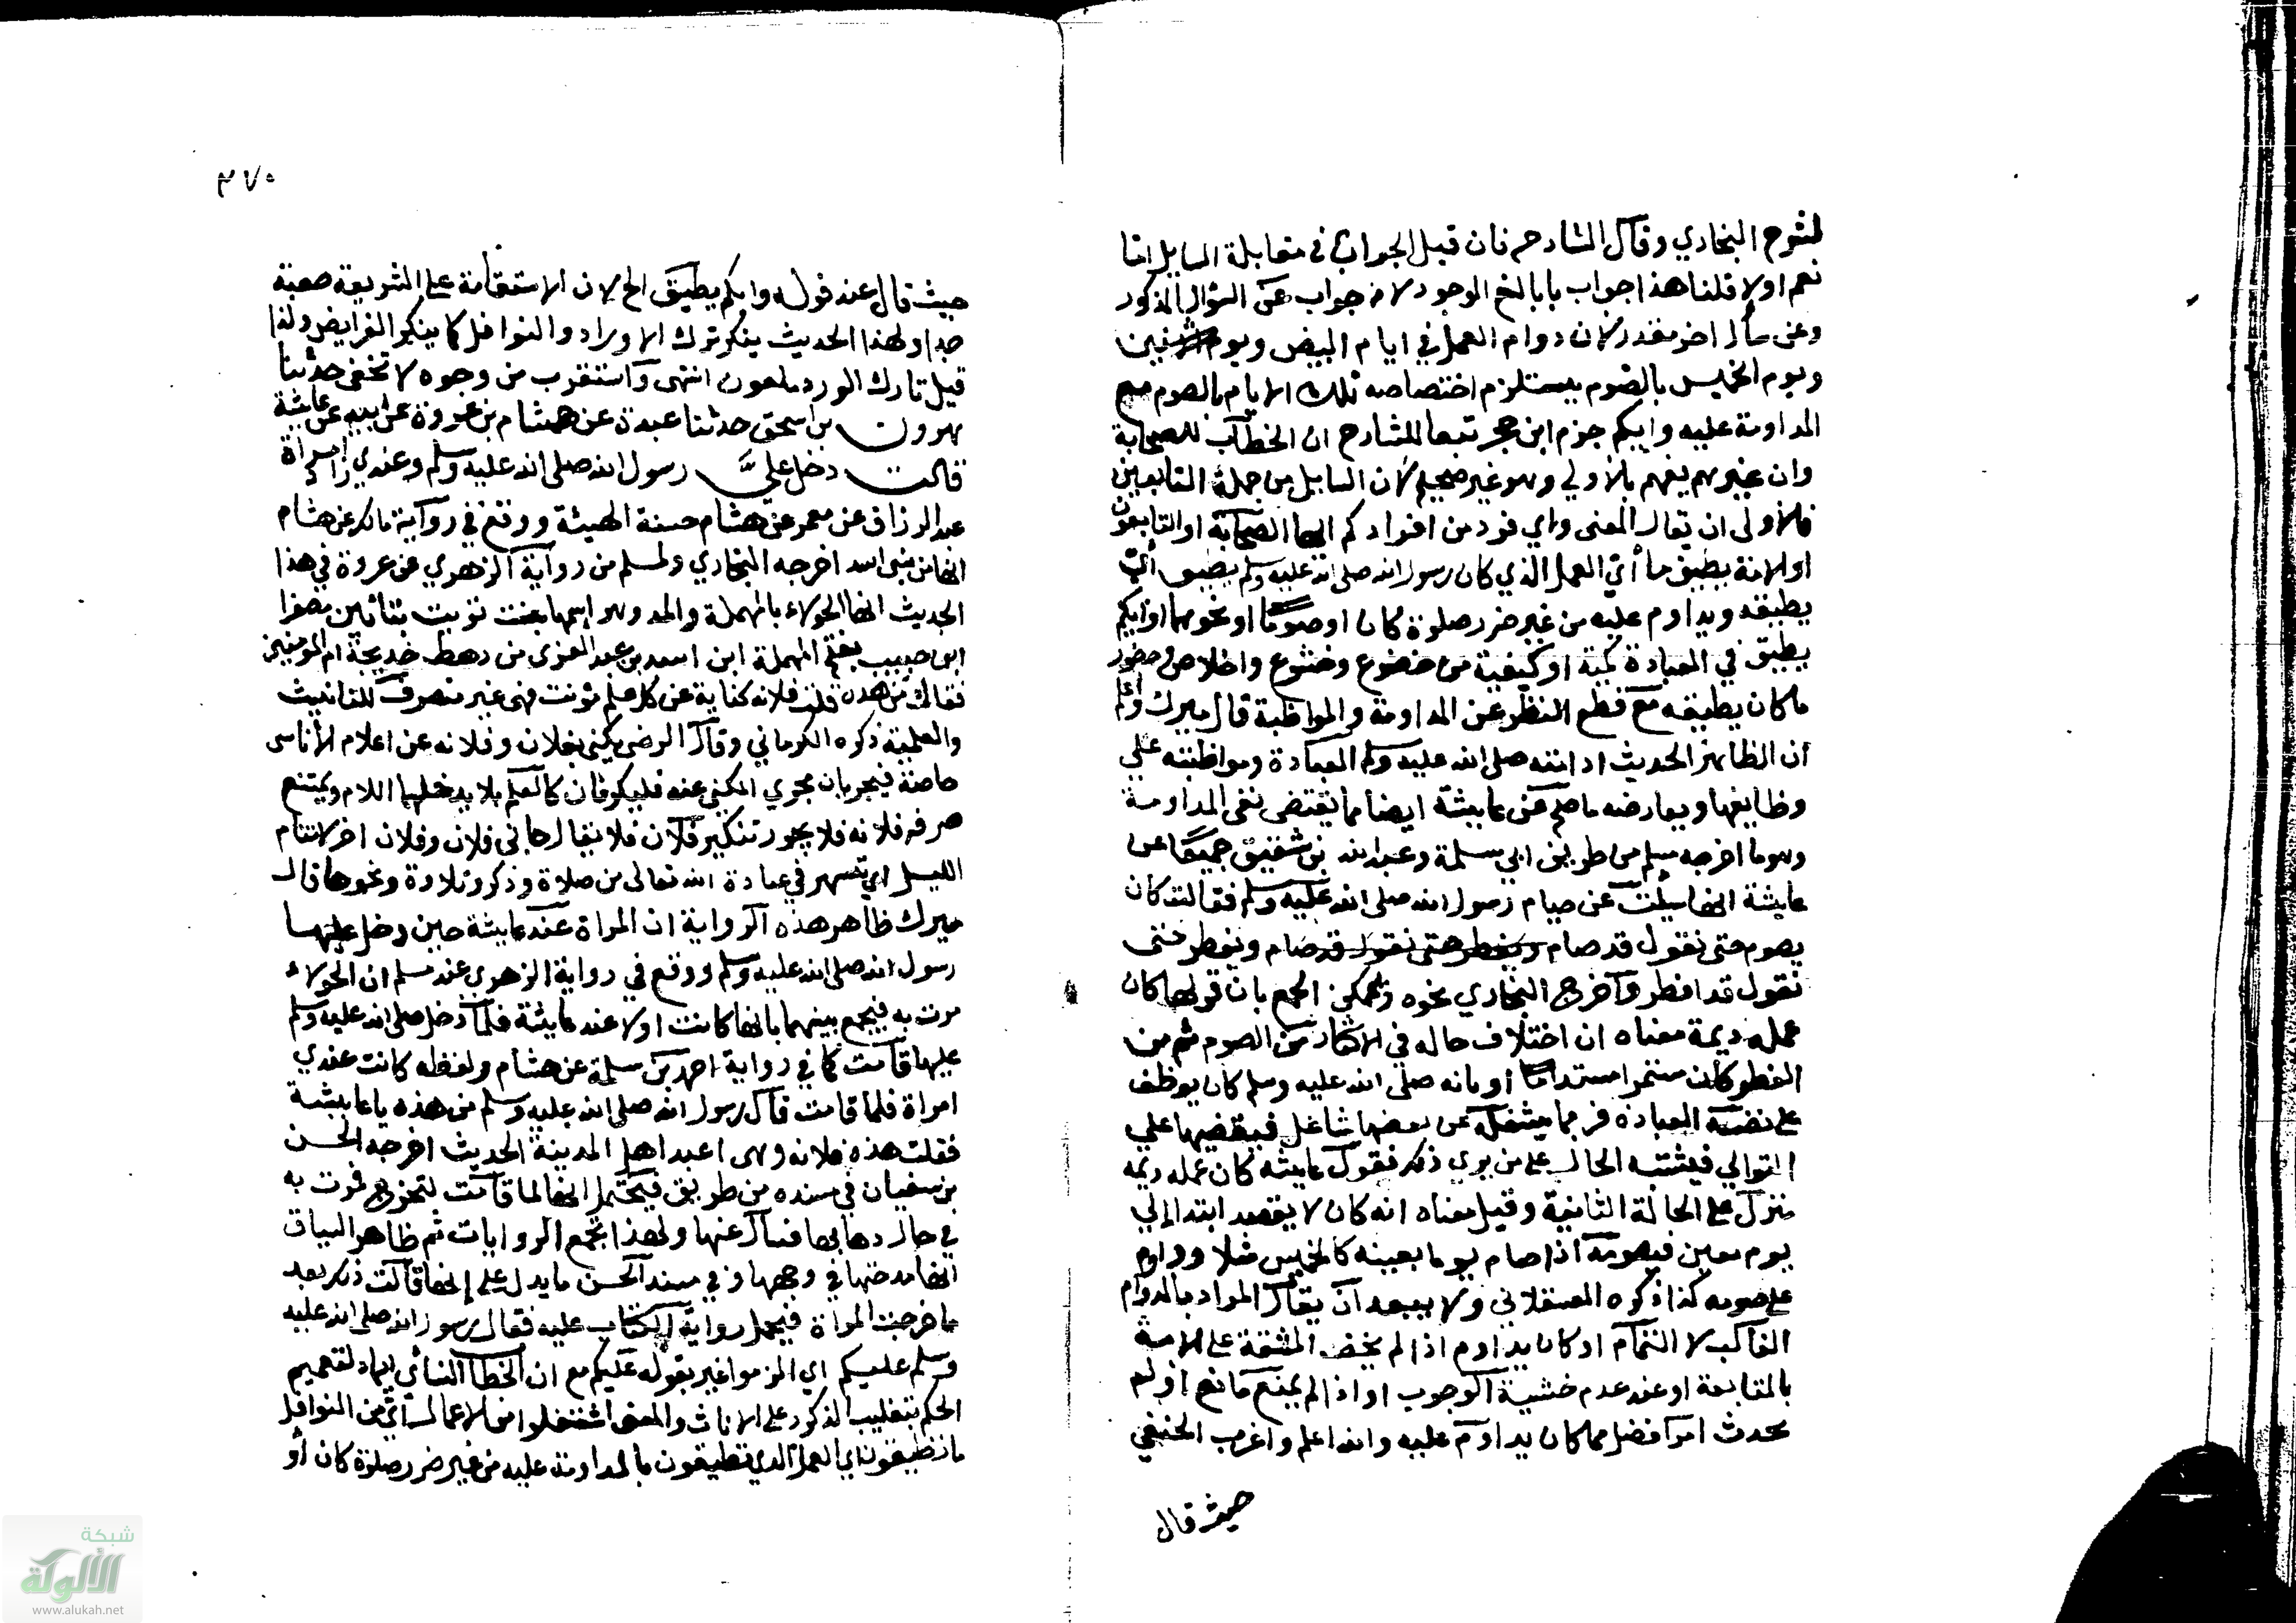 لشرح البخاري وقال الشارح فان قيل الجواب في مقابلة السايل اما
نعم اولا قلنا هذا جواب بابالغ الوجوه لانه جواب عن السؤال المذكور
وعن سأل اخر مقدر لان دوام العمل في ايام البيض ويوم الاثنين
ويوم الخميس بالصوم يستلزم اختصاصه تلك الايام بالصوم مع
المداومة عليه وايكم جزم ابن حجر تبعا للشارح ان الخطاب للصحابة
وان غيرهم يفهم بالاولي وهو غير صحيح لان السايل من جملة التابعين
فالاولى ان يقال المعنى واي فرد من افرادكم ايها الصحابة او التابعون
او الامة يطيق ما أي العمل الذي كان رسول الله صلى الله عليه وسلم يطيق أي
يطيقه ويداوم عليه من غير ضرر صلوة كان او صوما او نحوهما او ايكم
يطيق في العبادة كمية او كيفية من خضوع وخشوع واخلاص وحضور
ما كان يطيقه مع قطع النظر عن المداومة والمواظبة قال ميرك واعلم
ان الظاهر الحديث ادامته صلى الله عليه وسلم العبادة ومواظبته علي
وظايفها ويعارضه ما صح عن عايشة ايضا مما يقتضي نفي المداومة
وهو ما اخرجه مسلم من طريق ابي سلمة وعبدالله بن شقيق جميعا عن
عايشة انها سيلت عن صيام رسول الله صلى الله عليه وسلم فقالت كان
يصوم حتى نقول قد صام ويفطر حتى نقول قد صام ويفطر حتى
نقول قد افطر واخرج البخاري نحوه ويمكن الجمع بان قولها كان
عمله ديمة معناه ان اختلاف حاله في الاكثار من الصوم ثم من
الفطر كان مستمرا مستداما او بانه صلى الله عليه وسلم كان يوظف
على نفسه العبادة فربما يشغله عن بعضها شاغل فيقضيها علي
التوالي فيشتبه الحال على من يري ذلك فقول عايشة كان عمله ديمة
منزل على الحالة الثانية وقيل معناه انه كان لا يقصد ابتدا الي
يوم معين فيصومه اذا صام يوما بعينه كالخميس مثلا وداوم
على صومه كذا ذكره العسقلاني ولا يبعد ان يقال المراد بالدوام
الغالب لا التمام او كان يداوم اذا لم يخف المشقة على الامة
بالمتابعة او عند عدم خشية الوجوب او اذا لم يمنع مانع او لم
يحدث امر افضل مما كان يداوم عليه والله اعلم واغرب الحنفي
حيث قال
٣٧٠
حيث قال عند قوله وايكم يطيق الخ لان الاستقامة على الشريعة صعبة
جدا ولهذا الحديث ينكر ترك الاوراد والنوافل كما ينكر الفرايض ولذا
قيل تارك الورد ملعون انتهى واستقرب من وجوه لا تخفى حدثنا
هرون بن اسحق حدثنا عبدة عن هشام بن عروة عن ابيه عن عايشة
قالت دخل علي رسول الله صلى الله عليه وسلم وعندي امراة زاد
عبدالرزاق عن معمر عن هشام حسنة الهيئة ووقع في رواية مالك عن هشام
انها من بني اسد اخرجه البخاري ولمسلم من رواية الزهري عن عروة في هذا
الحديث انها الحولاء بالمهملة والمد وهو اسمها بنت تويت بتائين مصغرا
ابن حبيب بفتح المهملة ابن اسد بن عبد العزى من رهط خديجة ام المومنين
فقال من هذه قلت فلانه كناية عن كل علم مؤنث فهي غير منصرف للتانيث
والعلمية ذكره الكرماني وقال الرضي يكنى بفلان وفلانه عن اعلام الأناسى
خاصة فيجريان مجرى المكنى عنه فيكونان كالعلم فلا يدخلهما اللام ويمتنع
صرف فلانه فلا يجوز تنكير فلان فلا يقال جاني فلان وفلان اخر لا تنام
الليل اي تسهر في عبادة الله تعالى من صلاة وذكر وتلاوة ونحوها قال
ميرك ظاهر هذه الرواية ان المراة عند عايشة حين دخل عليها
رسول الله صلى الله عليه وسلم ووقع في رواية الزهري عند مسلم ان الحولاء
مرت به فيجمع بينهما بانها كانت اولا عند عايشة فلما دخل صلى الله عليه وسلم
عليها قامت كما في رواية احمد بن سلمة عن هشام ولفظه كانت عندي
امراة فلما قامت قال رسول الله صلى الله عليه وسلم من هذه يا عايشة
فقلت هذه فلانه وهي اعبد اهل المدينة الحديث اخرجه الحسن
بن سفيان في سنده من طريق فيحتمل انها لما قامت لتخرج فمرت به
في حال ذهابها فسال عنها ولهذا تجمع الروايات ثم ظاهر السياق
انها مدحتها في وجهها وفي مسند الحسن ما يدل على انها قالت ذلك بعد
ما خرجت المراة فيحمل رواية الكتاب عليه فقال رسول الله صلى الله عليه
وسلم عليكم اي الزموا عبر بقوله عليكم مع ان الخطاب النسائي ايماء لتعميم
الحكم بتغليب الذكور على الاناث والمعنى اشتغلوا من الاعمال أي من النوافل
ما تطيقون اي العمل الذي تطيقون بالمداومة عليه من غير ضرر صلوة كان أو
شبكة
الألوكة
www.alukah.net